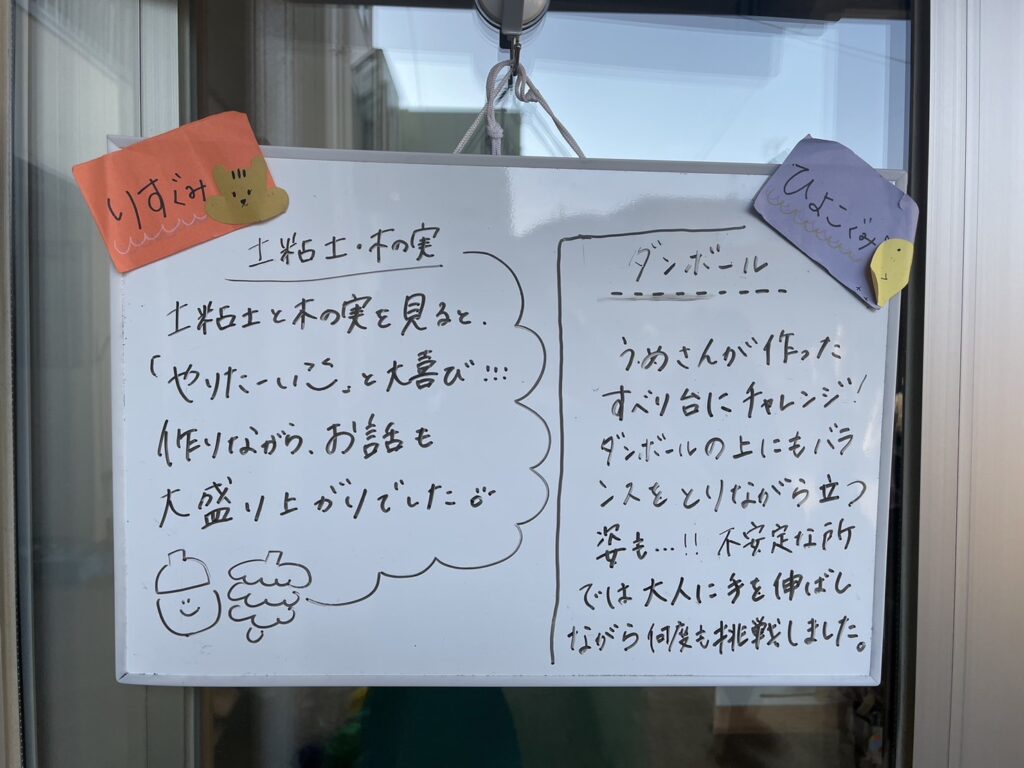 りすぐみ
土粘土・木の実
土粘土と木の実を見ると、
「やりたーい」と大喜び!!!
作りながら、お話も
大盛り上がりでした
ひよこぐみ
ダンボール
うめさんが作った
すべり台にチャレンジ!
ダンボールの上にもバラ
ンスをとりながら立つ
姿も…!! 不安定な所
では大人に手を伸ばし
ながら何度も挑戦しました。